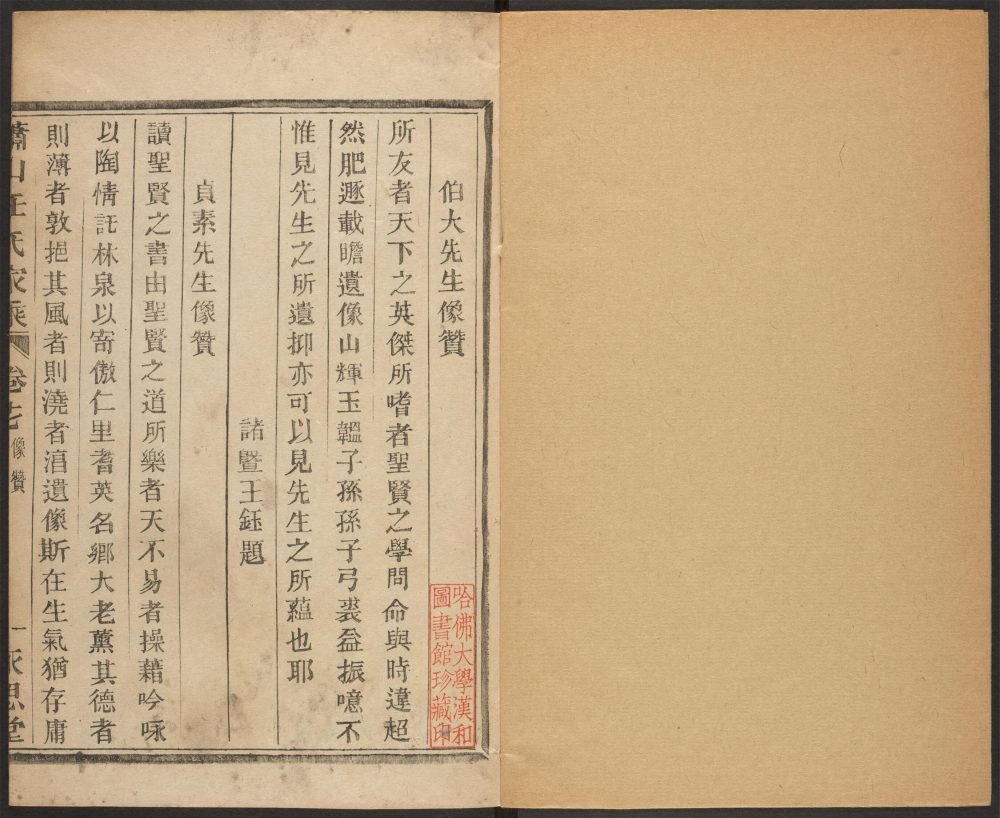 伯大先生像贊
所友者天下之英傑所嗜者聖賢之學問命與時違超
然肥遯載瞻遺像山輝玉韞子孫孫子弓裘益振噫不
惟見先生之所遺抑亦可以見先生之所蘊也耶
諸曁王鈺題
貞素先生像贊
讀聖賢之書由聖賢之道所樂者天不易者操藉吟咏
以陶情託林泉以寄傲仁里耆英名鄉大老薰其德者
則薄者敦挹其風者則澆者淳遺像斯在生氣猶存庸
蕭山任氏家乘 卷 像贊 一 永思堂
哈佛大學漢和
圖書館珍藏印